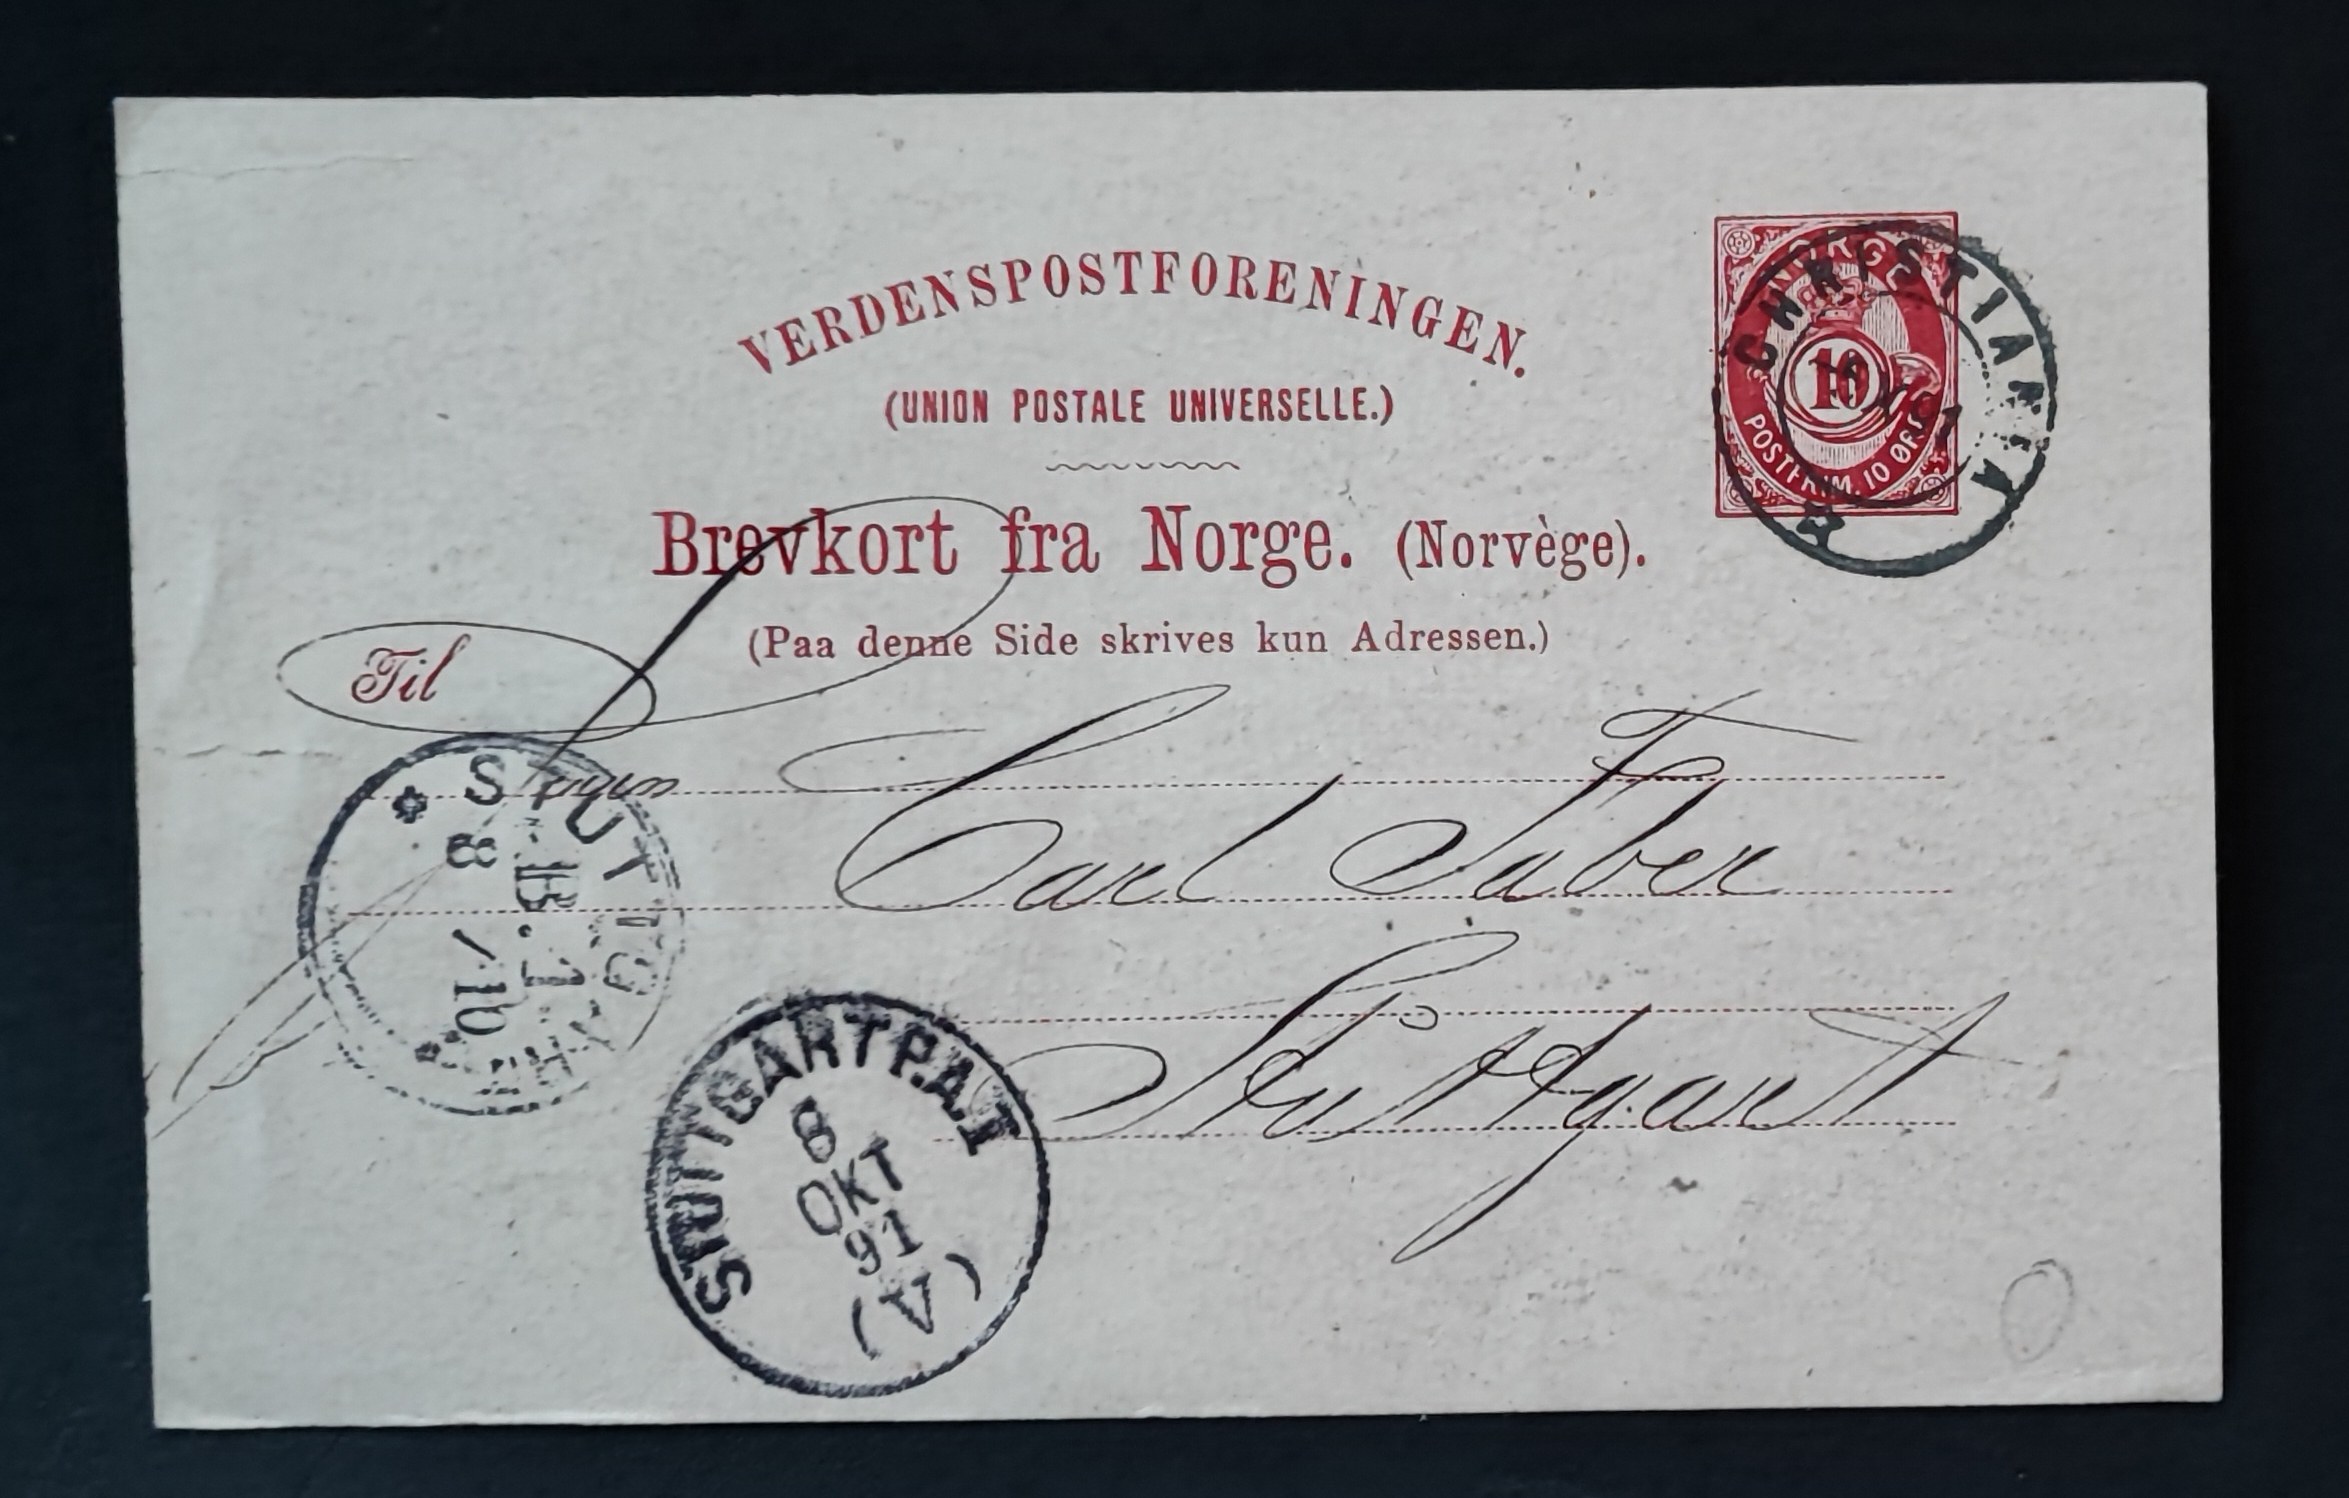 VERDENSPOSTFORENINGEN.
(UNION POSTALE UNIVERSELLE.)
NORGE
10
POSTFRIM. 10 ØRE
CHRISTIANIA
Brevkort fra Norge. (Norvège).
(Paa denne Side skrives kun Adressen.)
Til
Carl Faber
Stuttgart
STUTTG
8/10
B. 1
STUTTGART P.A.I
8
OKT
91
(V)